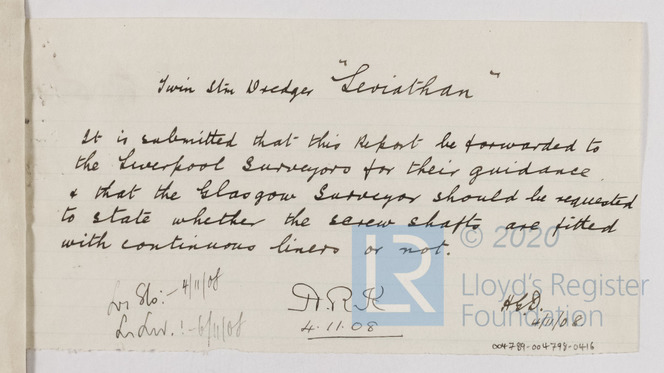 Twin Stm Dredger "Leviathan"
It is submitted that this Report be forwarded to
the Liverpool Surveyors for their guidance
& that the Glasgow Surveyor should be requested
to state whether the screw shafts are fitted
with continuous liners or not.
Lr Gls:- 4/11/08
Lr Liv.:- 6/11/08
A.R.K
4.11.08
4/11/08
LR
© 2020
Lloyd's Register
Foundation
004789-004798-0416